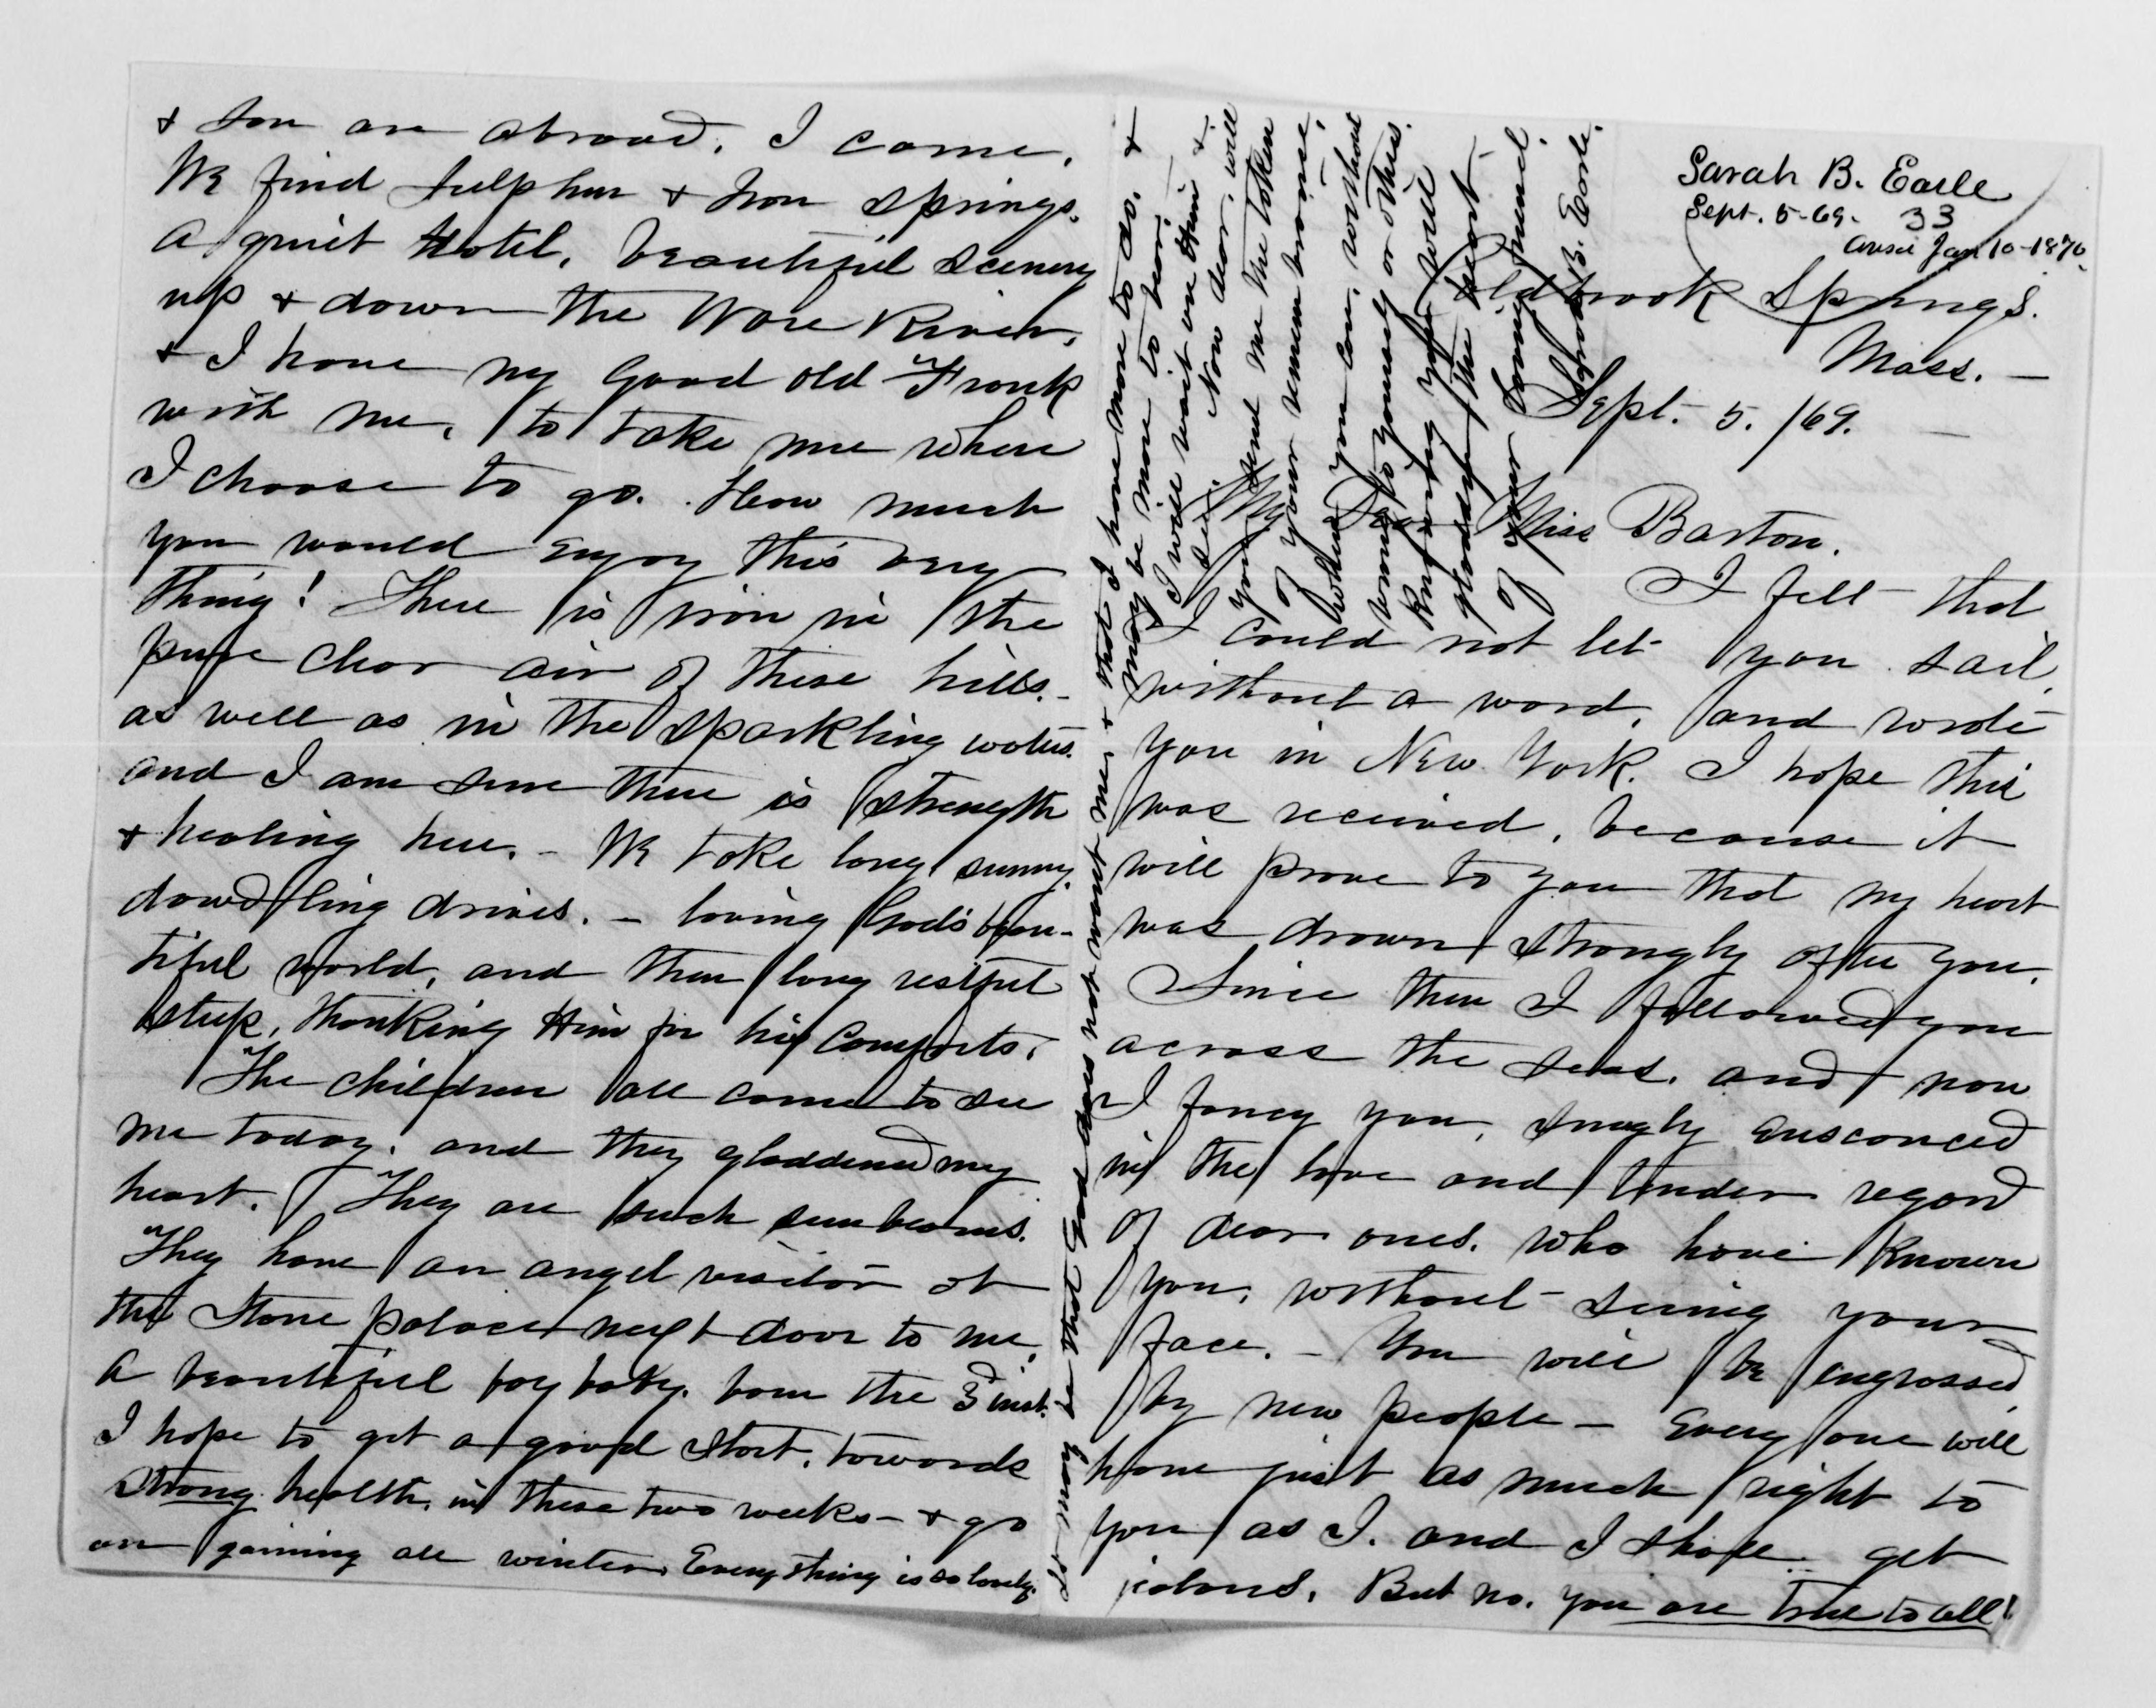 Sarah B. Earle
Sept. 5-69. 33
Answd Jan 10-1870
Coldbrook Springs.
Mass. —
Sept. 5. /69. —
My Dear Miss Barton.
I felt that
I could not let you sail
without a word, and wrote
you in New York. I hope this
was received, because it
will prove to you that my heart
was drawn strongly after you.
Since then I followed you
across the seas, and now
I fancy you, snugly ensconced
in the love and tender regard
of dear ones, who have known
you, without seeing your
face. – You will be engrossed
by new people – Every one will
have just as much right to
you as I. and I shall get
jealous. But no. you are true to all!
& son are abroad, I came.
We find sulphur & Iron Springs.
a quiet Hotel, beautiful scenery
up & down the Ware River,
& I have my good old Frank
with me, to take me where
I choose to go. How much
you would enjoy this very
thing! There is iron in the
pure clear air of these hills. –
as well as in the sparkling waters.
and I am sure there is strength
& healing here. – We take long sunny
dawdling drives. – loving God's beau-
tiful world, and then long restful
sleep, thanking Him for his comforts.
The children all came to see
me today. and they gladdened my
heart. They are such sunbeams.
They have an angel visitor at
the Stone palace next door to me,
a beautiful boy baby. born the 3d inst.
I hope to get a good start, towards
strong health, in these two weeks – & go
on gaining all winter. Everything is so lovely.
It may be that God does not want me & that I have more to do. &
may be more to bear.
I will wait on Him &
see. Now dear, will
you send me the token
of your remembrance,
when you can, without
worry to yourself or others.
Knowing you will
gladden the heart
of your loving friend.
Sarah B. Earle.